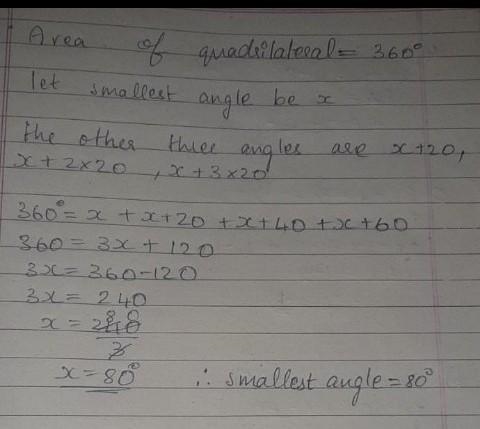 Area of quadrilateral = 360°
let smallest angle be x
the other three angles are x+20,
x + 2×20 , x + 3×20
360° = x + x+20 + x+40 + x+60
360 = 3x + 120
3x = 360-120
3x = 240
x = 240 80
3
x = 80° ∴ smallest angle = 80°